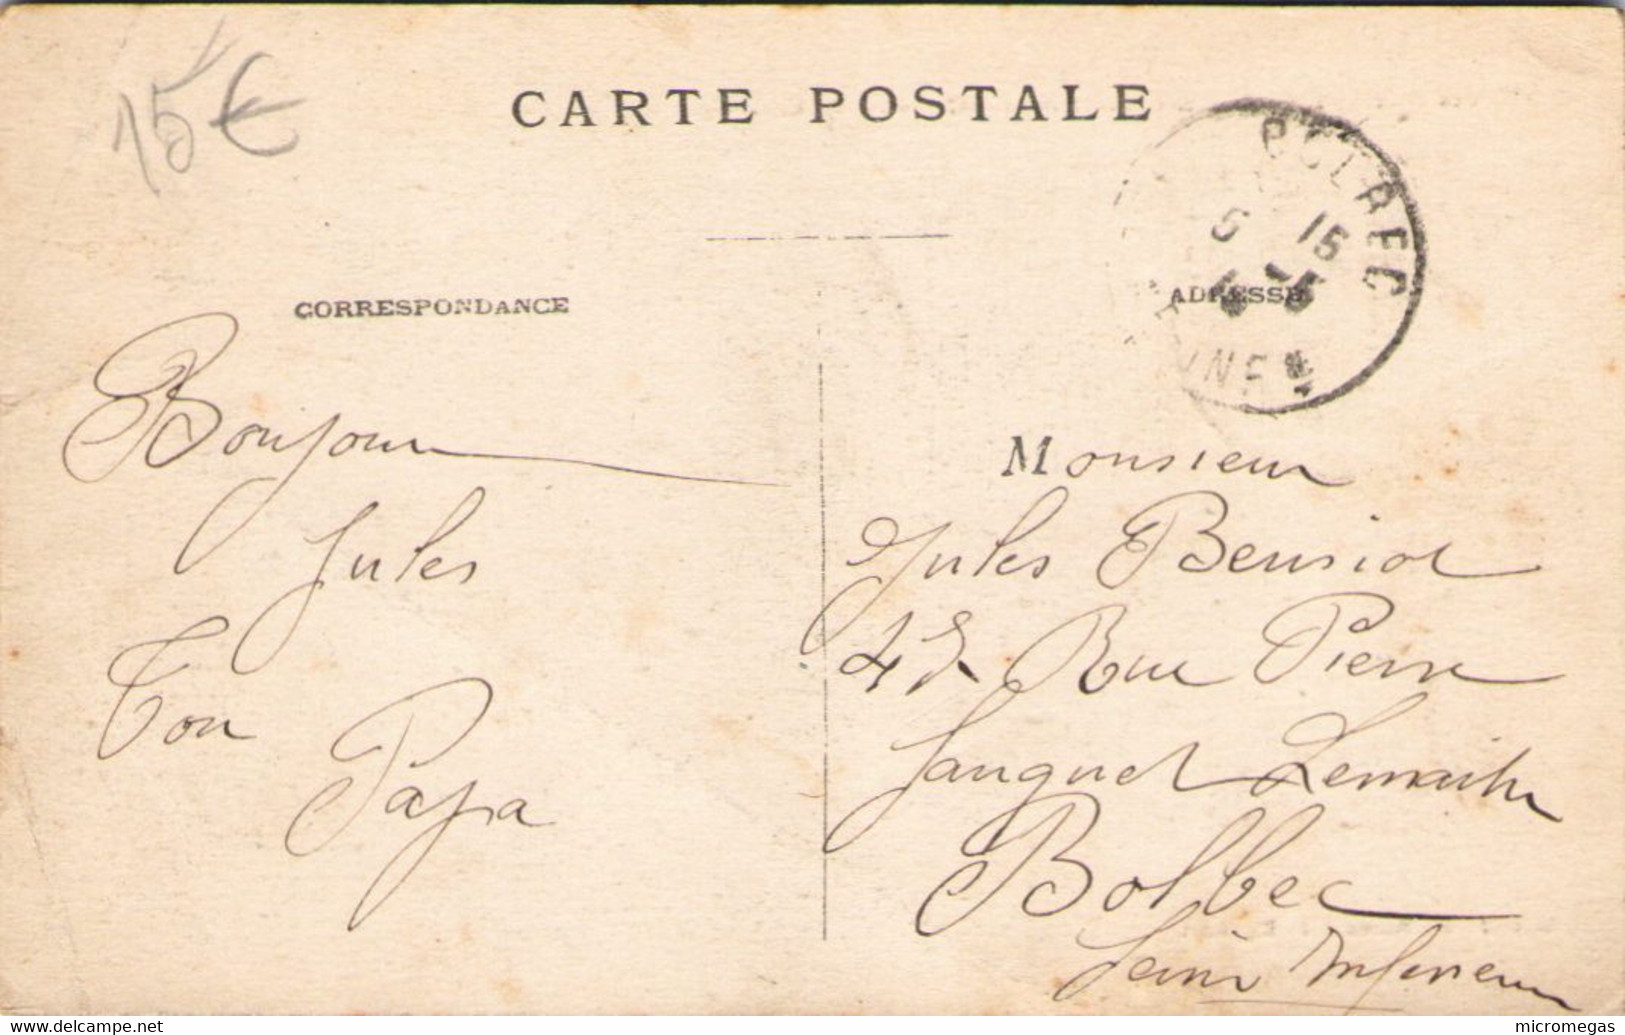 15€
CARTE POSTALE
CORRESPONDANCE
ADRESSE
Bonjour
Jules
Ton
Papa
Monsieur
Jules
Rue Pierre
Fauquet Lemaitre
Bolbec
Seine Inférieure
www.delcampe.net
micromegas